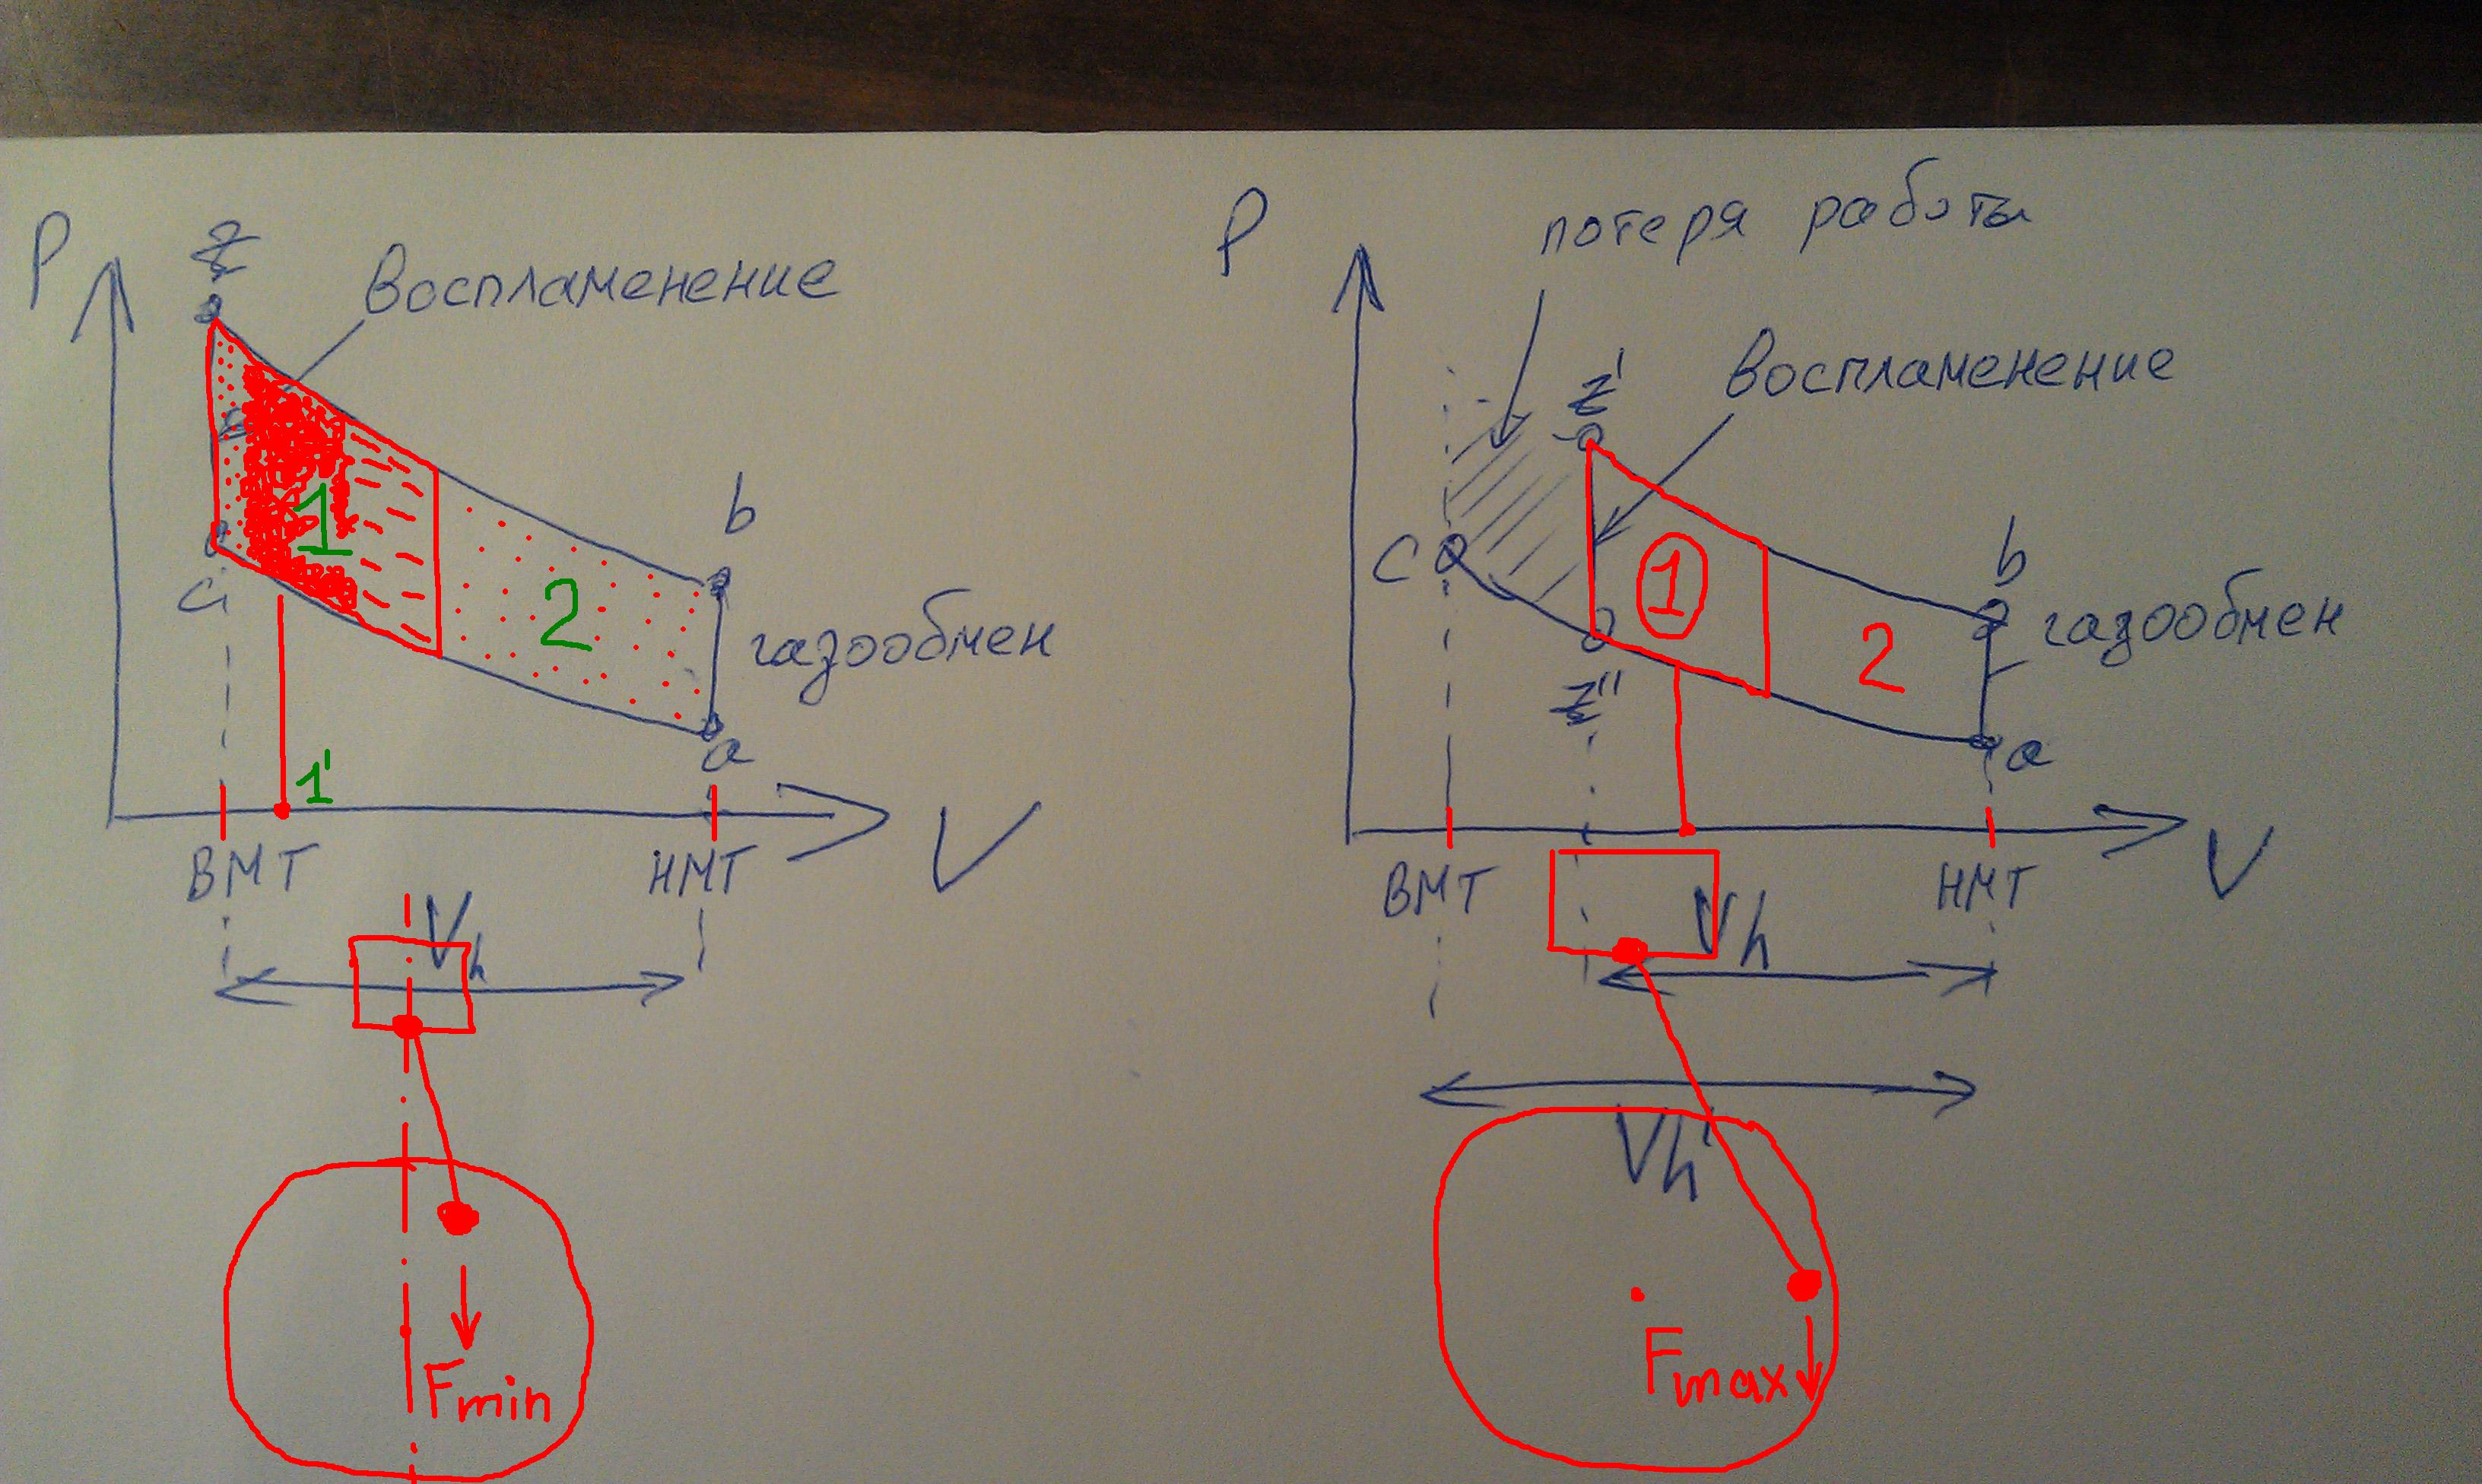 P
z
Воспламенение
c
1
2
b
газообмен
a
1'
ВМТ
НМТ
V
Vh
Fmin
P
потеря работы
z'
Воспламенение
c
1
2
b
газообмен
z''
a
ВМТ
НМТ
V
Vh
Vh'
Fmax